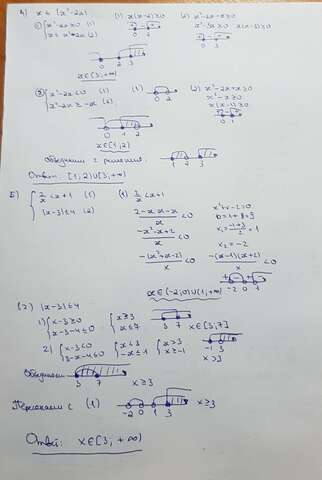 4) x ≤ |x²-2x|
(1) x(x-2)≥0 (2) x²-2x-x≥0
① { x²-2x≥0 (1)
x²-3x≥0 x(x-3)≥0
x ≤ x²-2x (2)
0 2 3
x∈[3,+∞)
② { x²-2x<0 (1)
x²-2x ≥ -x (2)
(1) 0 2
(2) x²-2x+x≥0
x²-x≥0
x(x-1)≥0
0 1
0 1 2
x∈[1,2)
Объединим 2 решения.
1 2 3
Ответ: [1,2)∪[3,+∞)
5) { 2/x < x+1 (1)
|x-3|≤4 (2)
(1) 2/x < x+1
(2-x·x-x)/x <0
(-x²-x+2)/x <0
-(x²+x-2)/x <0
x²+x-2=0
D=1+8=9
x₁=(-1+3)/2=1
x₂=-2
-(x-1)(x+2)/x <0
-2 0 1
x∈(-2;0)∪(1,+∞)
(2) |x-3|≤4
1) { x-3≥0
x-3-4≤0
{ x≥3
x≤7
3 7
x∈[3,7]
2) { x-3<0
3-x-4≤0
{ x<3
-x≤1
{ x>3
x≥-1
-1 3
x>3
Объединим
3 7
x≥3
Пересекаем с (1)
-2 0 1 3
x≥3
Ответ: x∈[3,+∞)